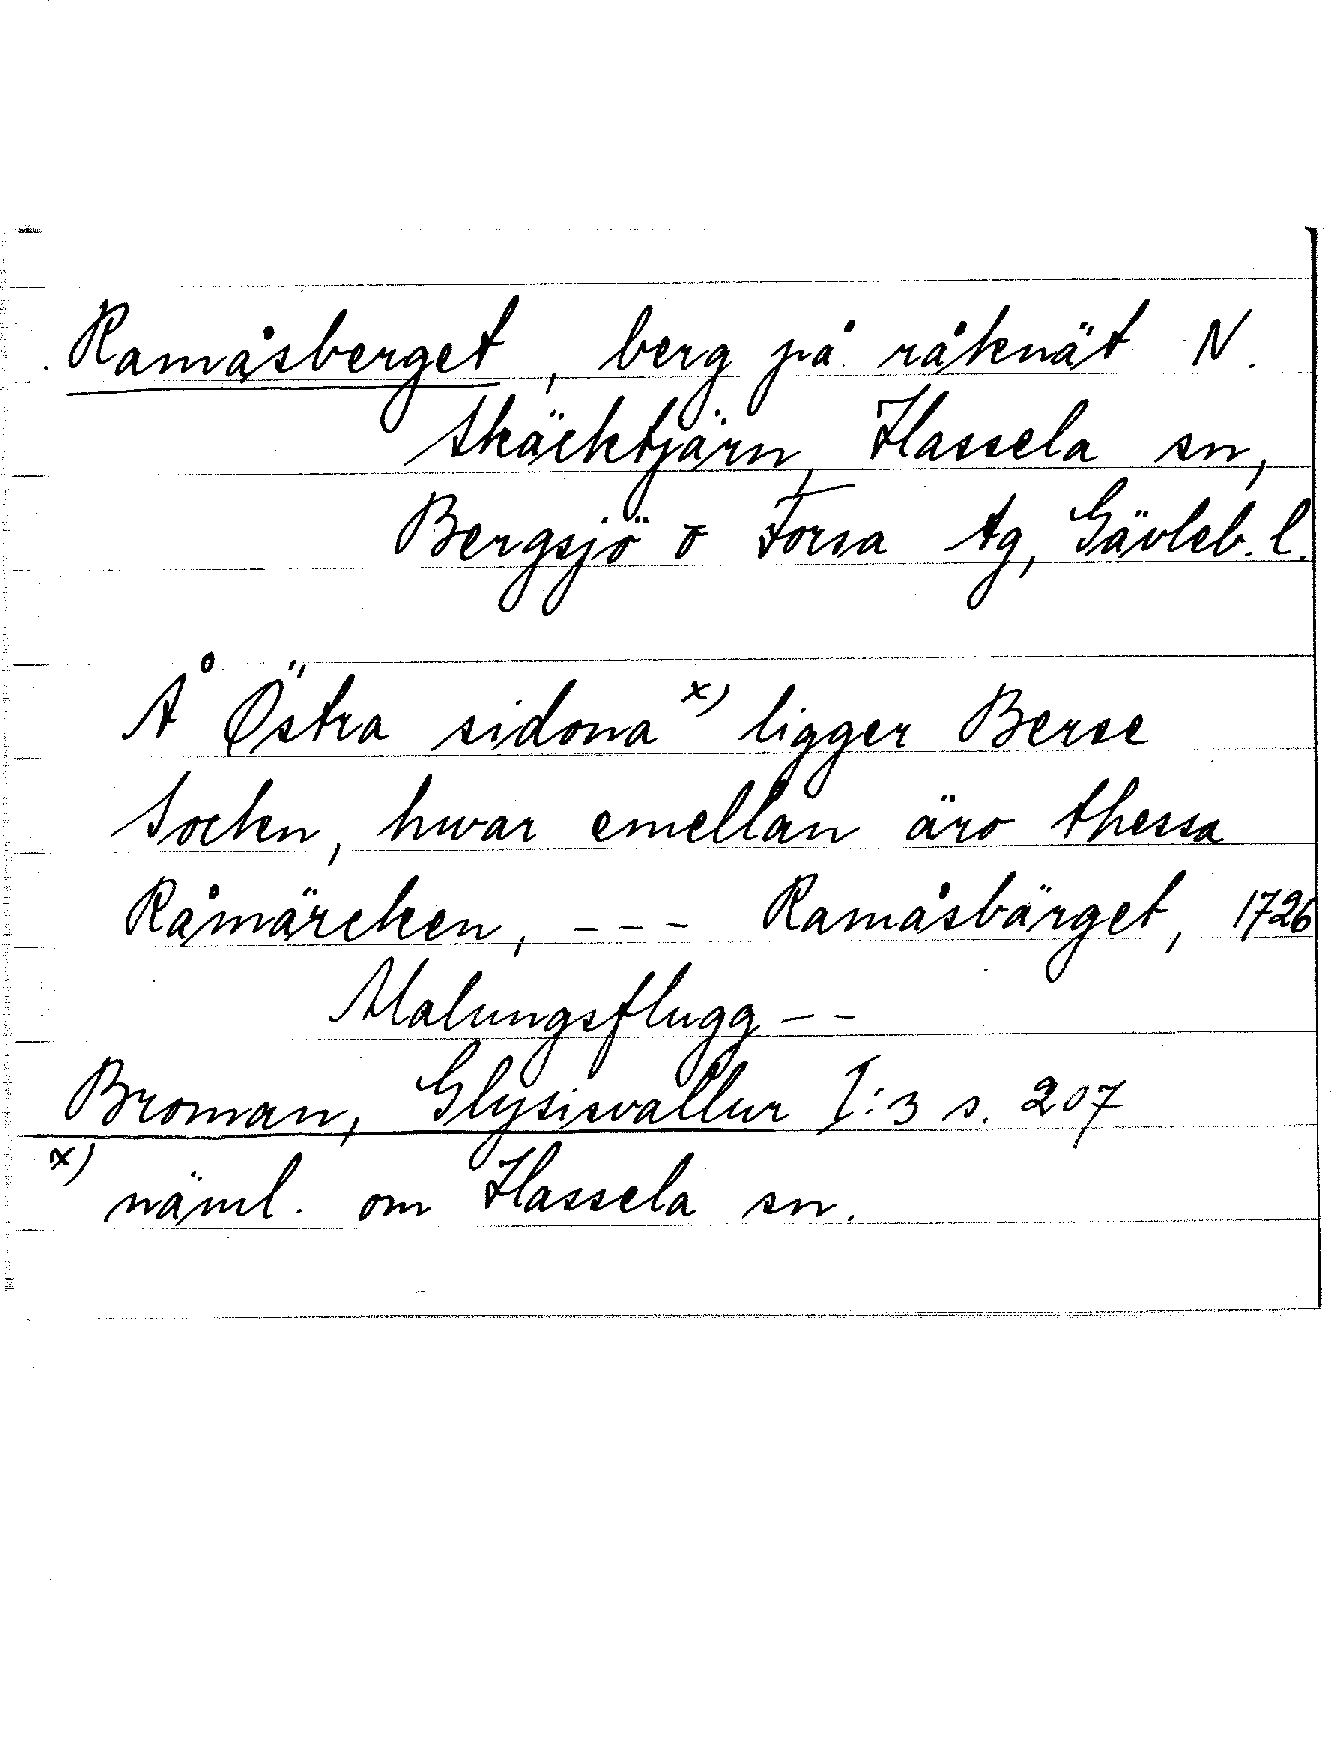 Ramåsberget, berg på råknät N.
Skäcktjärn, Hassela sn,
Bergsjö o Forsa tg, Gävleb. l.
Å Östra sidona x) ligger Berse
Socken, hwar emellan äro thessa
Råmärcken, --- Ramåsbärget, 1726
Malungsflugg --
Broman, Glysisvallur I:3 s. 207
x) näml. om Hassela sn.